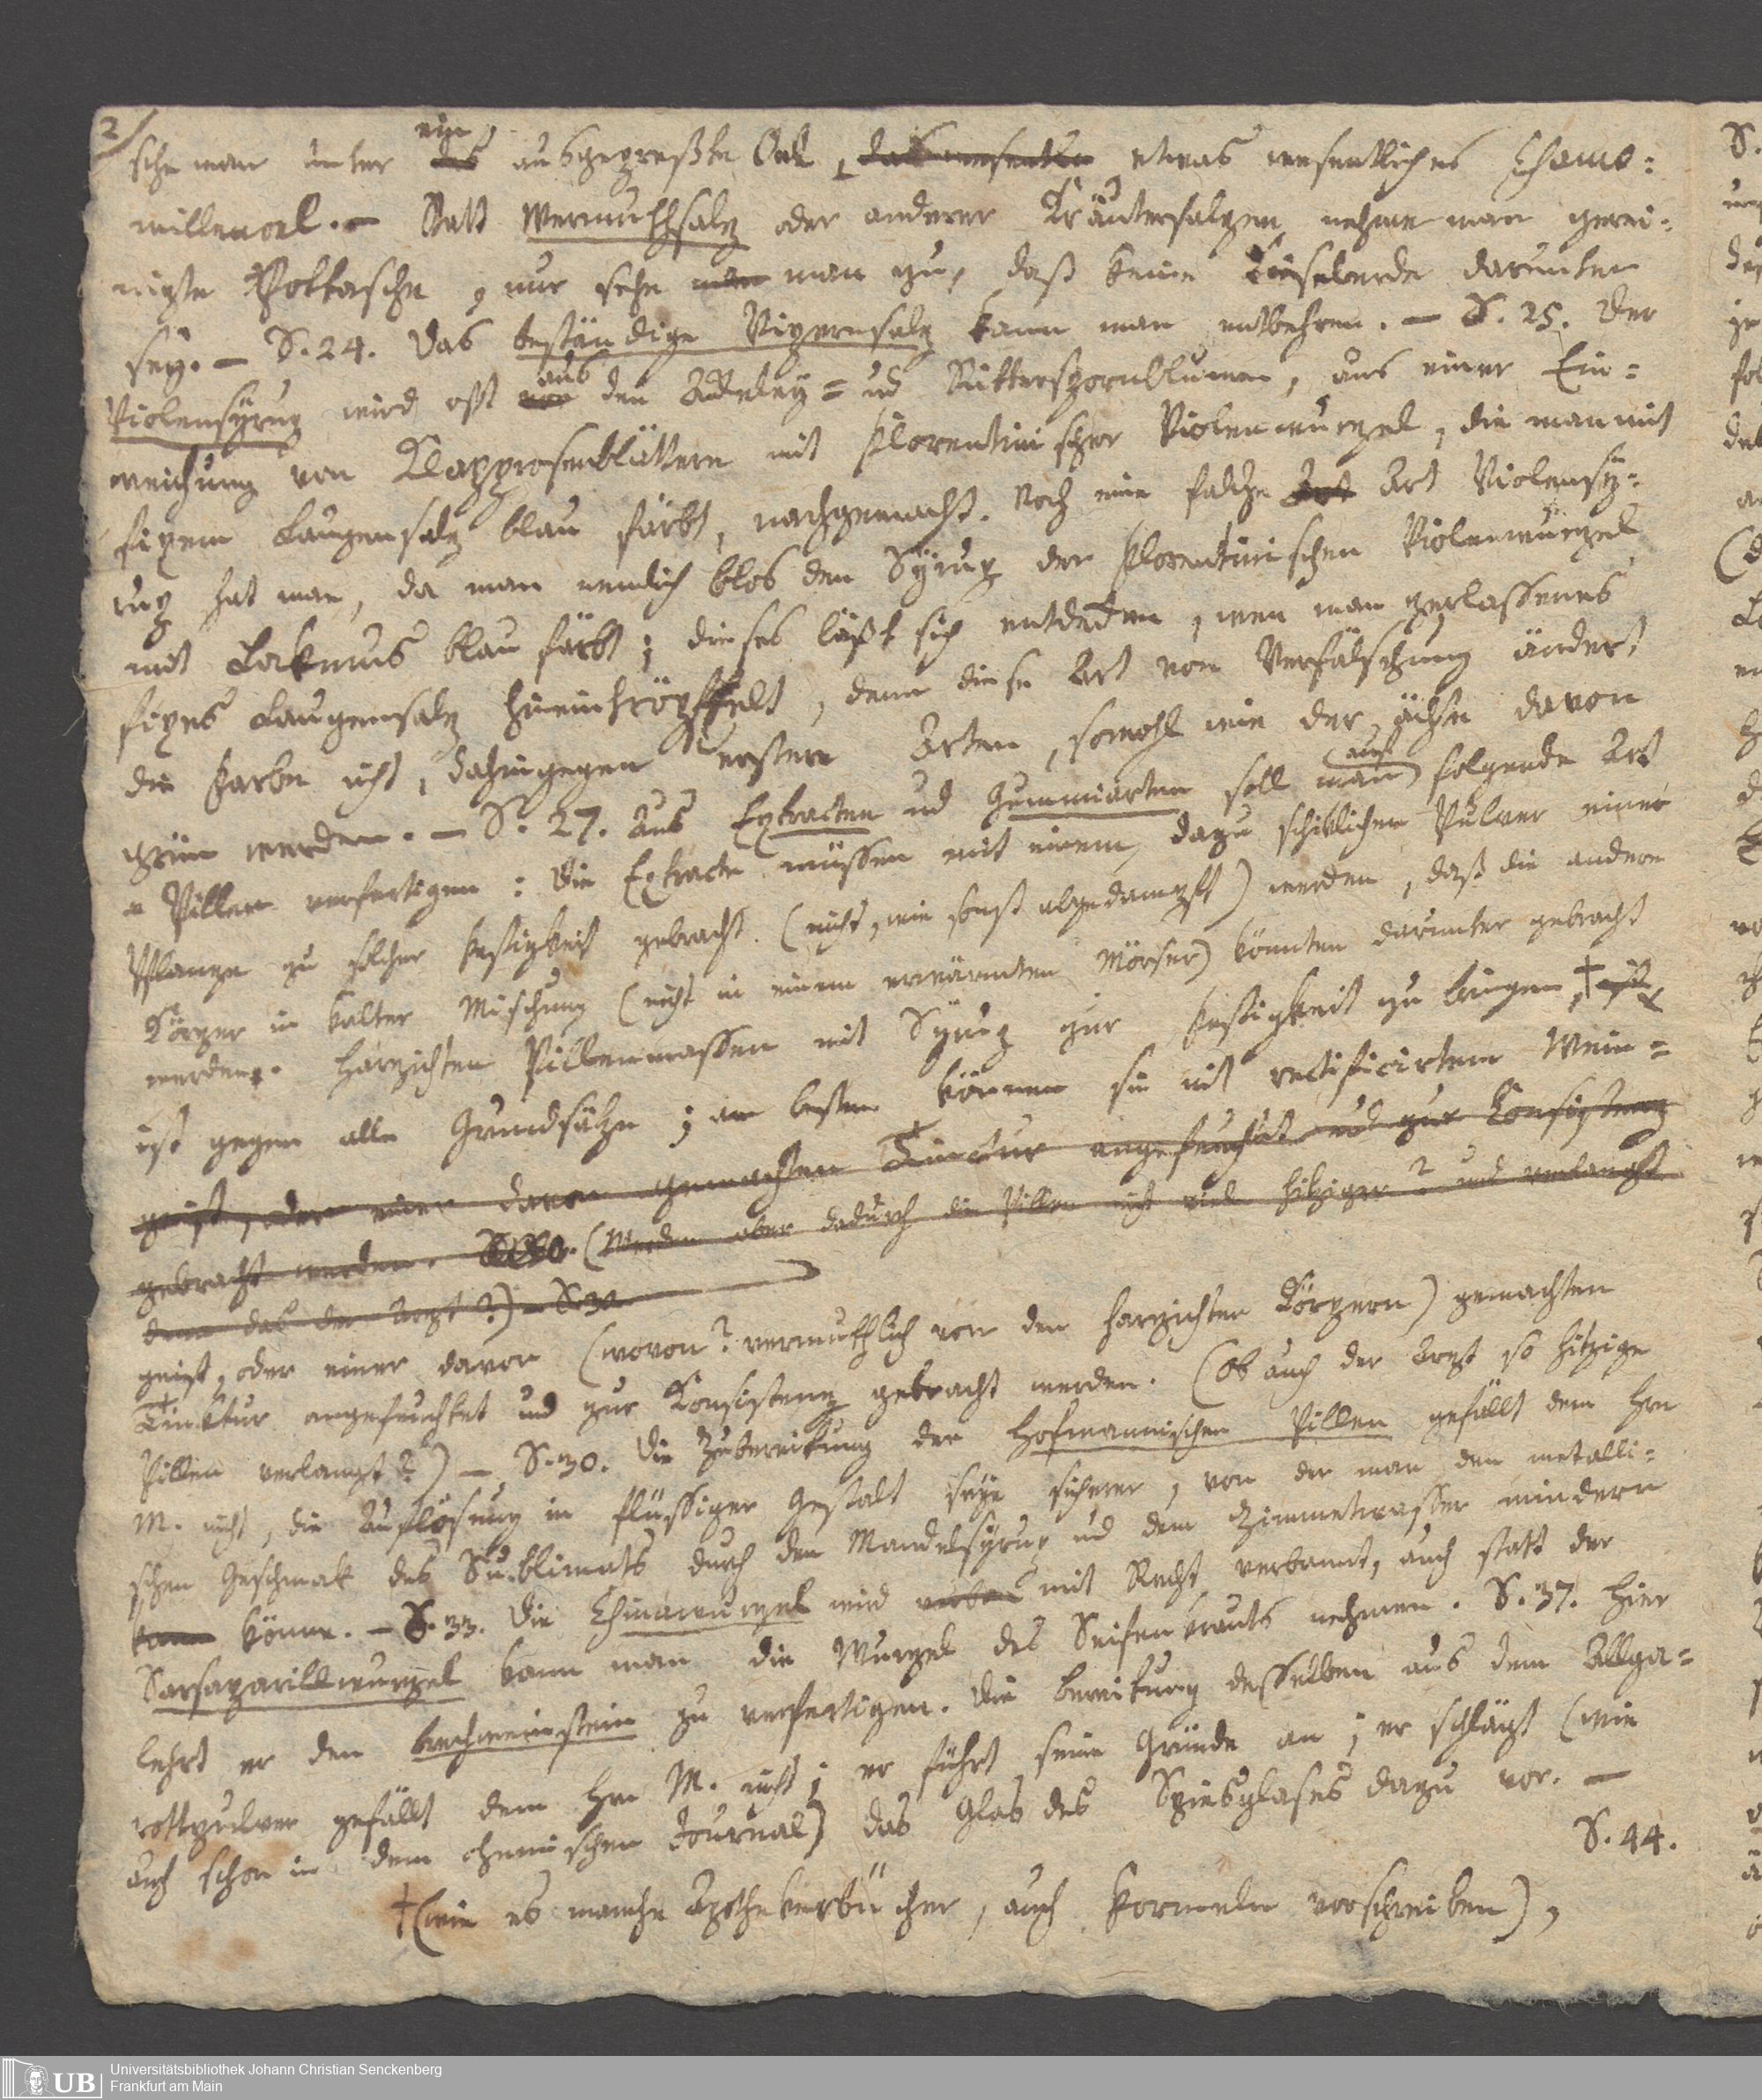 2
sche man unter ein das ausgepreßte Oel, das wesentle etwas wesentliches Chamo=
millenoel. — Statt Wermuthsalz oder anderer Kräutersalzen nehme man gerei=
nigte Pottasche, nur sehe man man zu, daß keine Kieselerde darunter
sey. — S. 24. Das beständige Vipernsalz kann man entbehren. — S. 25. Der
Violensyrup wird offt von aus den Akeley= und Rittersporrnblumen, aus einer Ein=
weichung von Klapprosenblättern mit florentinischer Violenwurzel, die man mit
fixem Laugensalz blau färbt, nachgemacht. Noch eine falsche Art Art Violensy=
rup hat man, da man nemlich blos den Syrup der florentinischen Violenwurzel
mit Lakmus blau färbt; dieses läßt sich entdecken, wen man zerlassenes
fixes Laugensalz hineintröpffelt, denn diese Art von Verfälschung ändert
die Farbe nicht, dahingegen erstere Arten, sowohl wie der ächte davon
grün werden. — S. 27. Aus Extracten und Gummiarten soll man auf folgende Art
Pillen verfertigen: Die Extracte müssen mit einem dazu schiklichen Pulver einer
Pflanze zu solcher Festigkeit gebracht (nicht, wie sonst abgedampft) werden, daß die andere
Körper in kalter Mischung (nicht in einem erwärmten Mörser) könnten darunter gebracht
werden. Harzichten Pillenmassen mit Syrup zur Festigkeit zu bringen, † ist
ist gegen alle Grundsätze; am besten können sie mit rectificirtem Wein=
geist, oder einer davon gemachten Tinctur angefeuchtet und zur Consistenz
gebracht werden. S. 30. (Werden aber dadurch die Pillen nicht viel hitziger? und verlangt
denn das der Arzt?) — S. 30.
geist, oder einer davon (wovon? vermuthlich von den harzichten Körpern) gemachten
Tinktur angefeuchtet und zur Consistenz gebracht werden. (Ob auch der Arzt so hitzige
Pillen verlangt?) — S. 30. Die Zubereitung der Hofmannischen Pillen gefällt dem Hrn
M. nicht, die Auflösung in flüssiger Gestalt seye sicherer, von der man den metalli=
schen Geschmak des Sublimats durch den Mandelsyrup und dem Zimmetwasser mindern
kann könne. — S. 33. Die Chinawurzel wird verban mit Recht verbannt, auch statt der
Sarsaparillwurzel kann man die Wurzel des Seifenkrauts nehmen. S. 37. Hier
lehrt er den Brechweinstein zu verfertigen. Die Bereitung desselben aus dem Allga=
rottpulver gefällt dem Hrn M. nicht; er führt seine Gründe an; er schlägt (wie
auch schon in dem chemischen Journal) das Glas des Spiesglases dazu vor. —
S. 44.
† (wie es manche Apothekerbücher, auch Formeln vorschreiben),
Universitätsbibliothek Johann Christian Senckenberg
Frankfurt am Main
UB